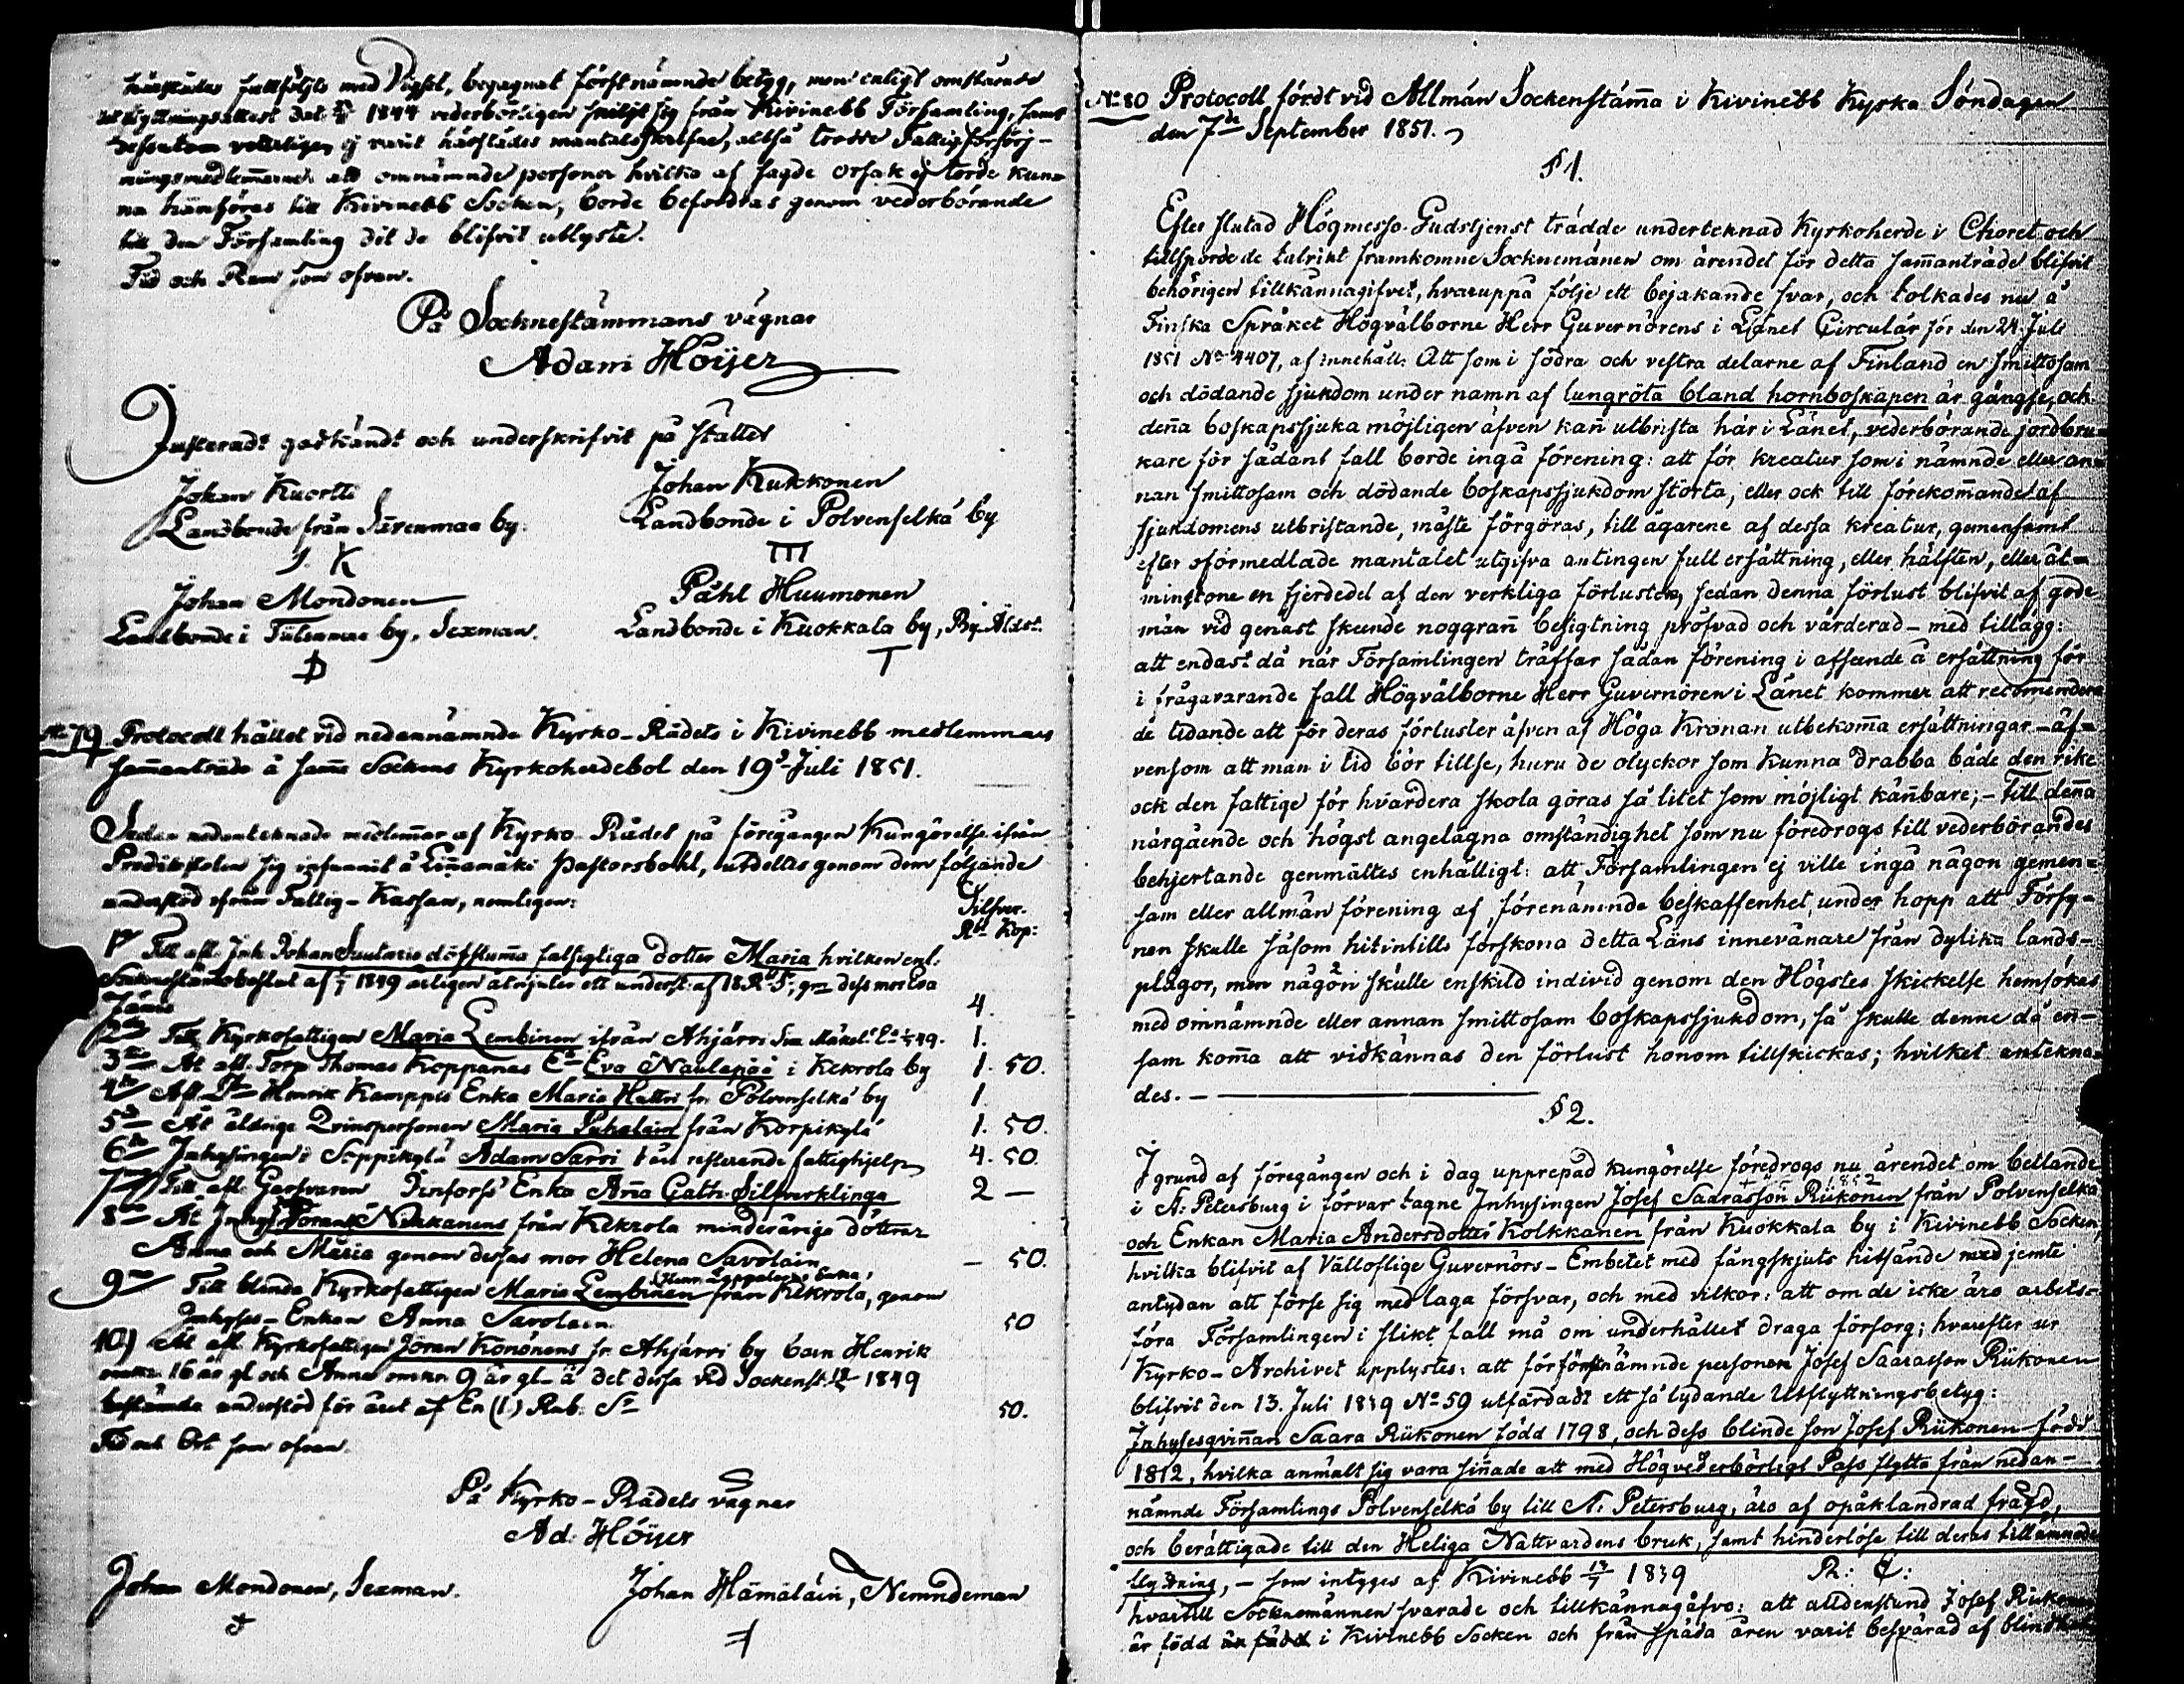 härstädes fullföljts med Vigsel, begagnat förstnämnde betyg, men enligt omförande
utflyttningsattest dat. 1844 vederbörligen skiljt sig från Kivinebb Församling, samt
dessutom veterligen ej varit härstädes mantalsskrifne, altså trodde Fattigförsörj-
ningsmedlemarne att omnämnde personer hvilka af sagde orsak ej torde kun-
na hänföras till Kivinebb Socken, borde befordras genom vederbörande
till den Församling dit de blifvit utlyste.
Tid och Rum som ofvan.
På Socknestämmans vägnar
Adam Höijer
Justeradt godkändt och underskrifvit på stället
Johan Kuortti
Landbonde från Järenmaa by.
J. K
Johan Kukkonen
Landbonde i Polvenselkä by
III
Johan Mondonen
Landbonde i Tülenmaa by, Sexman.
Påhl Huumonen
Landbonde i Kuokkala by, By. Äldst.
T
No 79 Protocoll hållet vid nedannämnde Kyrko-Rådets i Kivinebb medlemmars
sam̄anträde å sam̄a Sockens Kyrkoherdebol den 19de Juli 1851.
Sedan nedantecknade medlem̄ar af Kyrko-Rådet på föregången Kungörelse ifrån
Predikstolen sig infunnit å Lin̄amäki Pastorsbohl, utdeltes genom dem följande
understöd ifrån Fattig-Kassan, nemligen:
Silfver.
Rbl Kop:
1o Till afl. Inh. Johan Suutaris döfstum̄a fattigliga dotter Maria hvilken enl.
Sockenstämobeslut af 1849 årligen åtnjuter ett underst. af 18 R. S., gm dess mor Eva
Jäms 4.
2do Till Kyrkofattigen Maria Lembinen ifrån Ahjärvi 1.
3o At afl. Torp. Thomas Koppanas Ea Eva Naulapää i Kekrola by 1. 50.
4o Afl. Do Henrik Kamppis Enka Maria Hattri fr. Polvenselkä by 1.
5o Åt åldrige Qvinspersonen Maria Puhalain från Korpikylä 1. 50.
6o Inhysingen i Seppikylä Adam Sarvi 1 års resterande fattighjelp 4. 50.
7o Till afl. Garfvaren Dinfors' Enka An̄a Cath. Silfverklinga 2 —
8o Åt Inhys. Jörans Nokkanens från Kekrola minderåriga döttrar
Anna och Maria genom dessas mor Helena Savolain — 50.
9o Till blinda Kyrkofattigen Maria Lembinen från Kekrola, genom
Inhyses-Enkan Anna Savolain 50
10) At afl. Kyrkofattigen Jöran Konónens fr. Ahjärvi by barn Henrik
omkr. 16 år gl. och Anna omkr. 9 år gl. å det dessa vid Sockenst. 1849
bestämda understöd för året af En (1.) Rub. Sr 50.
Tid och Ort som ofvan.
På Kyrko-Rådets vägnar
Ad. Höijer
Johan Mondonen, Sexman.
Johan Hämäläin, Nemndeman
No 80 Protocoll fördt vid Allmän Sockenstäm̄a i Kivinebb Kyrka Söndagen
den 7de September 1851.
§ 1.
Efter slutad Högmesso-Gudstjenst trädde underteknad Kyrkoherde i Choret och
tillsporde de talrikt framkomne Socknemänen om ärendet för detta sam̄anträde blifvit
behörigen tillkännagifvet, hvaruppå följe ett bejakande svar, och tolkades nu å
Finska Språket Högvälborne Herr Guvernörens i Länet Circulär för den 24. Juli
1851 No 4407, af innehåll: Att som i södra och vestra delarne af Finland en smittosam
och dödande sjukdom under namn af lungröta bland hornboskapen är gängse, och
den̄a boskapssjuka möjligen äfven kan̄ utbrista här i Länet, vederbörande jordbru-
kare för sådant fall borde ingå förening: att för kreatur som i nämnde eller an-
nan smittosam och dödande boskapssjukdom störta, eller ock till förekom̄andet af
sjukdomens utbristande, måste förgöras, till ägarene af dessa kreatur, gemensamt
efter oförmedlade mantalet utgifva antingen full ersättning, eller hälften, eller åt-
minstone en fjerdedel af den verkliga förlusten, sedan denna förlust blifvit af gode
män vid genast skeende noggran̄ besigtning pröfvad och värderad – med tillägg:
att endast då när Församlingen träffar sådan förening i afseende å ersättning för
i frågavarande fall Högvälborne Herr Guvernören i Länet kommer att recomendera
de lidande att för deras förluster äfven af Höga Kronan utbekom̄a ersättningar – äf-
vensom att man i tid bör tillse, huru de olyckor som kunna drabba både den rike
ock den fattige för hvardera skola göras så litet som möjligt kän̄bare; – till den̄a
närgående och högst angelägna omständighet som nu föredrogs till vederbörandes
behjertande genmältes enhälligt: att Församlingen ej ville ingå någon gemen-
sam eller allmän förening af förenämnde beskaffenhet, under hopp att Försy-
nen skulle såsom hitintills förskona detta Läns innevånare från dylika lands-
plågor, men någon skulle enskild individ genom den Högstes skickelse hemsökas
med omnämnde eller annan smittosam boskapssjukdom, så skulle denne då en-
sam kom̄a att vidkännas den förlust honom tillskickas; hvilket antekna-
des. —
§ 2.
I grund af föregången och i dag upprepad kungörelse föredrogs nu ärendet om bettlande
i St. Petersburg i förvar tagne Inhysingen Josef Saarasson Riikonen från Polvenselkä
och Enkan Maria Andersdotter Kolkkanen från Kuokkala by i Kivinebb Socken,
hvilka blifvit af Välloflige Guvernörs-Embetet med fångskjuts hitsände med jemte
antydan att förse sig med laga försvar, och med vilkor: att om de icke äro arbets-
föra Församlingen i slikt fall må om underhållet draga försorg; hvarefter ur
Kyrko-Archivet upplystes: att för förstnämnde personen Josef Saarasson Riikonen
blifvit den 13. Juli 1839 No 59 utfärdadt ett så lydande Utflyttningsbetyg:
Inhysesqvin̄an Saara Riikonen född 1798, och dess blinde son Josef Riikonen född
1812, hvilka anmält sig vara sin̄ade att med Högvederbörligt Pass flytta från nedan-
nämnde Församlings Polvenselkä by till St. Petersburg, äro af opåklandrad frägd,
och berättigade till den Heliga Nattvardens bruk, samt hinderlöse till deras tillämnade
flyttning, – som intygas af Kivinebb 13/7 1839 R: C:
hvartill Socknemännen svarade och tillkännagåfvo: att alldenstund Josef Riikonen
är född i Kivinebb Socken och från späda åren varit besvärad af blindhet